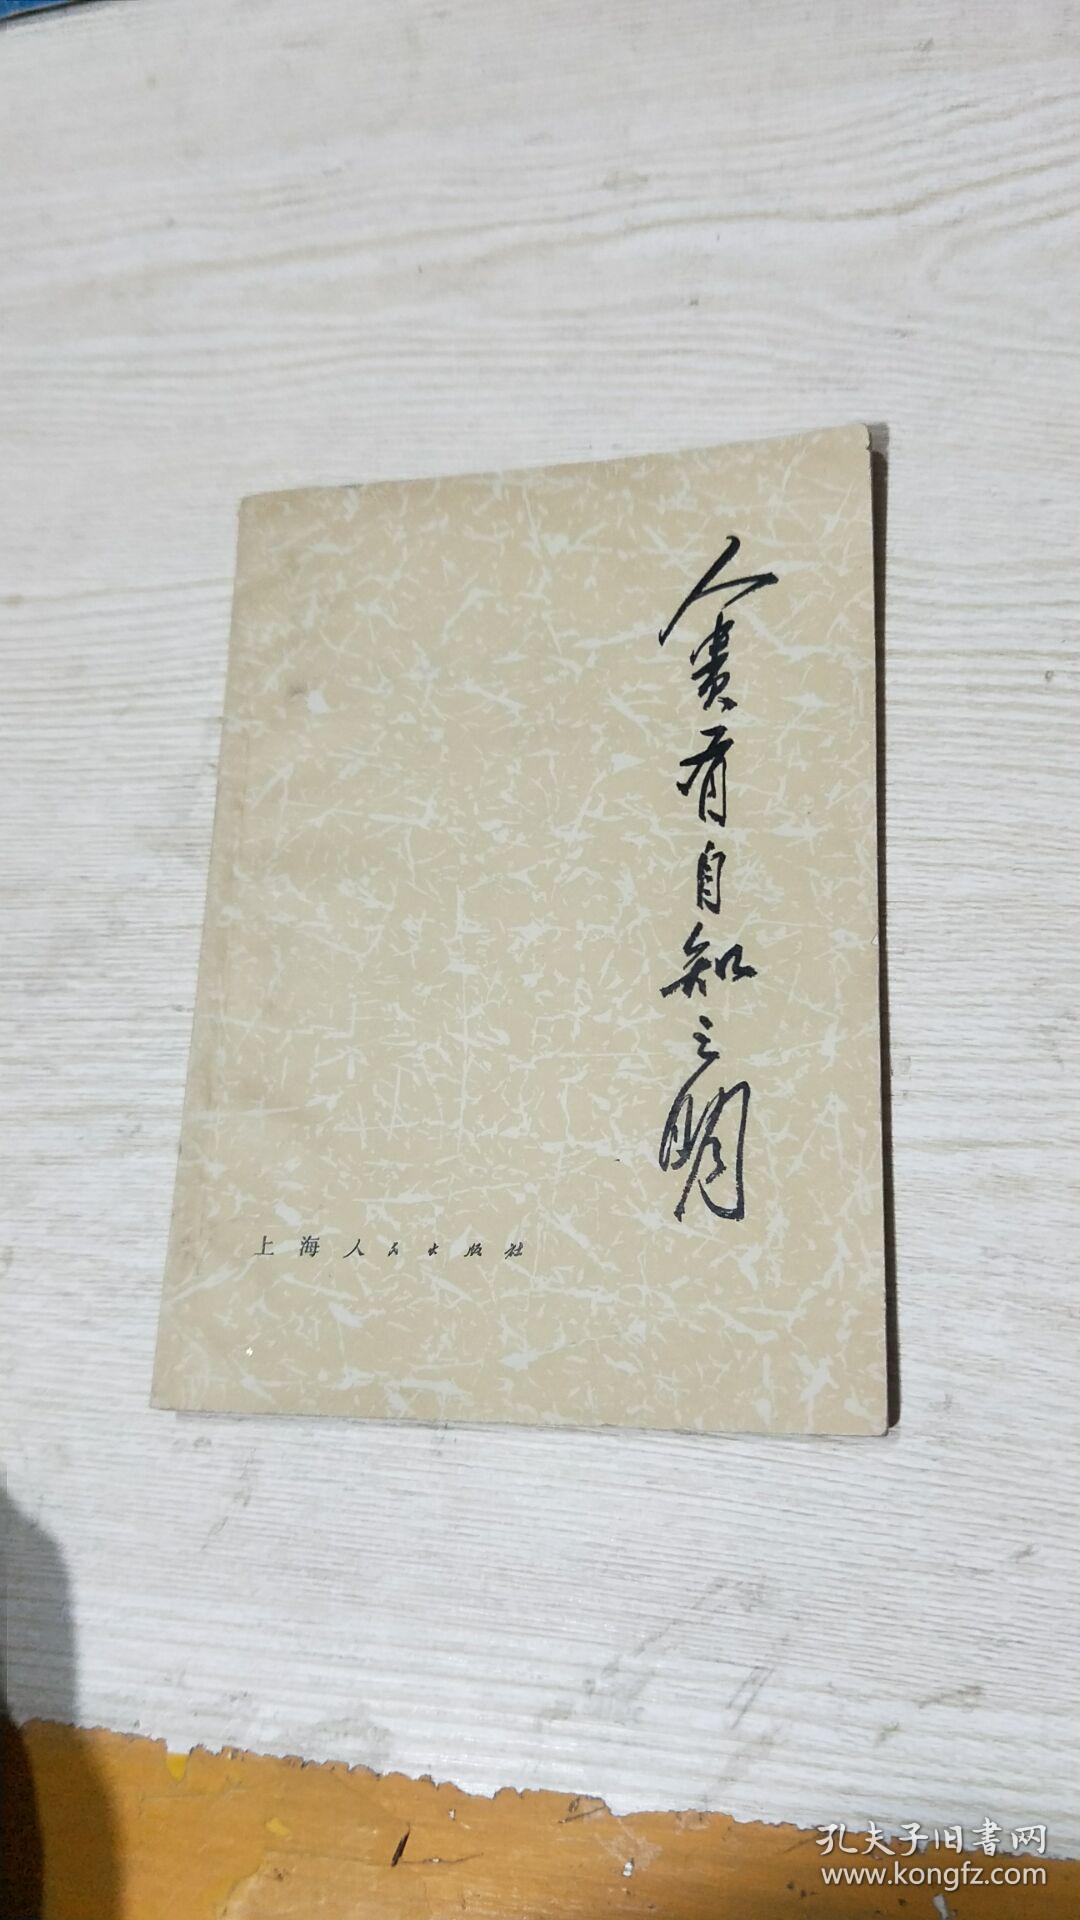 人贵有自知之明
上海人民出版社
孔夫子旧书网
www.kongfz.com